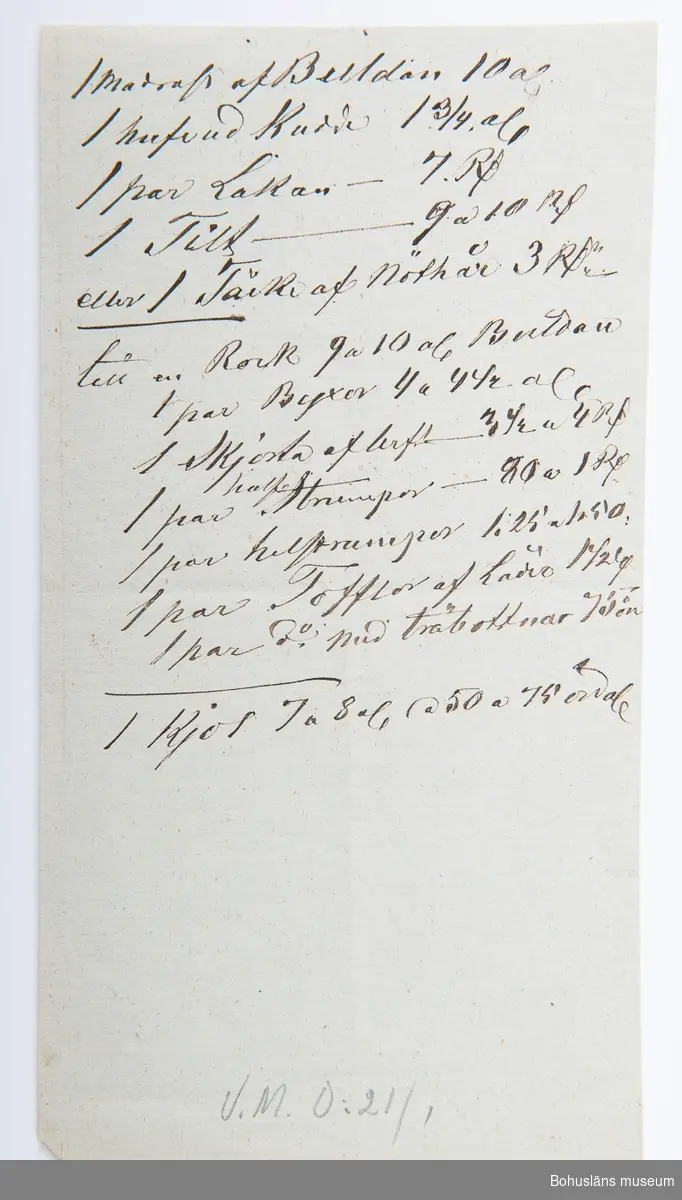 1 Madrass af Buldan 10 al
1 hufvud Kudde 1 3/4. al
1 par Lakan — 7. Rd
1 Filt — 9 a 10 Rd
eller 1 Täcke af Nöthår 3 Rd
till en Rock 9 a 10 al Buldan
1 par Byxor 4 a 4 1/2 al
1 Skjorta af lerft — 3 1/2 a 4 Rd
1 par half Strumpor — 80 a 1 Rd
1 par helstrumpor 1:25 a 1:50:
1 par Tofflor af Läder 1 1/2
1 par d:o med träbottnar 75 ör
1 Kjol 7 a 8 al a 50 a 75 öre al
V.M. O:21/1
Bohusläns museum